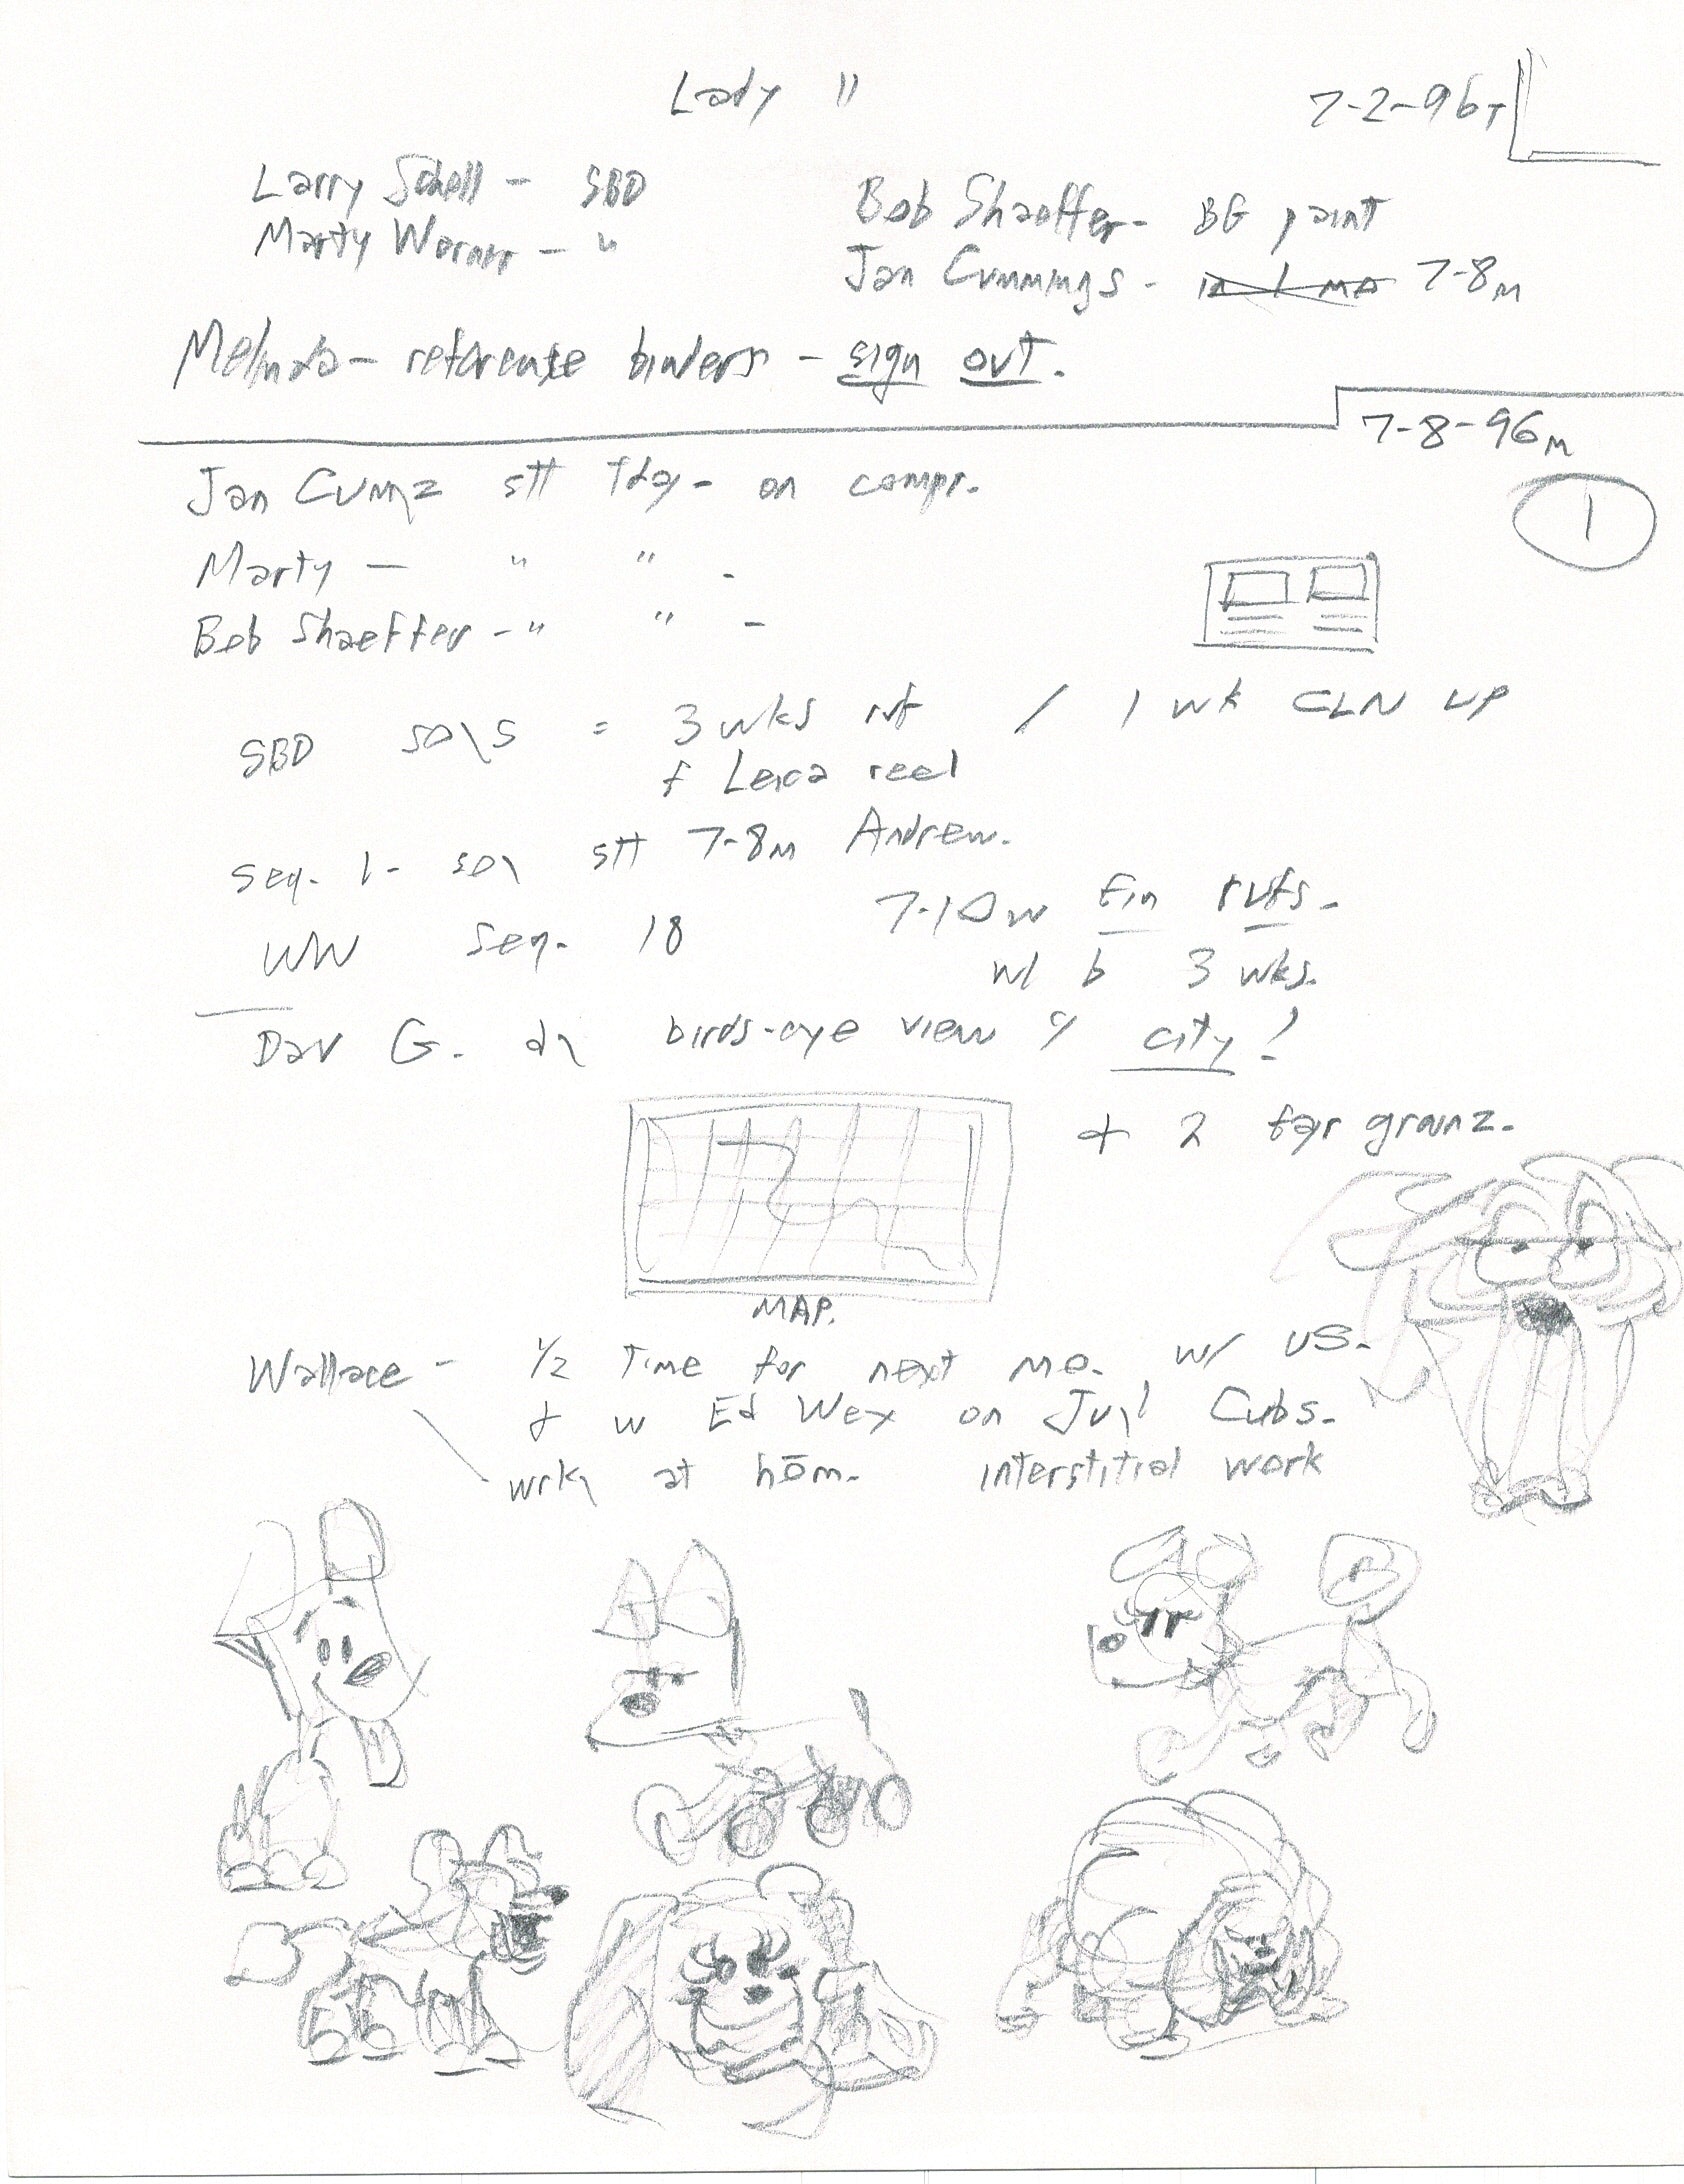 Lady II
7-2-96T
Larry Scholl - SBD
Marty Warner - "
Bob Shaeffer - BG paint
Jan Cummings - 7-8M
Melinda - reference binders - sign out.
7-8-96M
1
Jan Cumgz stt tday - on compr.
Marty - " " -
Bob Shaeffer - " " -
SBD = 3 wks ruf / 1 wk CLN UP
+ Leica reel
Seq. 1 - stt 7-8M Andrew.
7-10W Fin rufs.
WW Seq. 18
w/ b 3 wks.
Dav G. birds-eye view of city!
+ 2
MAP.
Wallace - 1/2 Time for next mo. w/ US.
+ w Ed Wex on Jungl Cubs.
wrkg at hōm. interstitial work